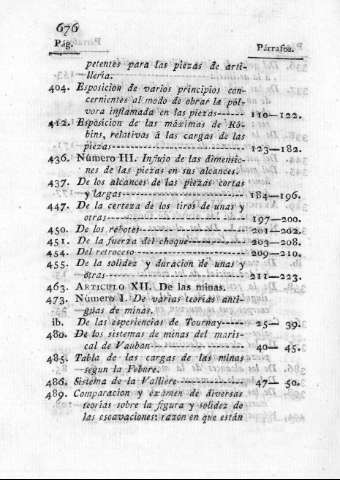 676
Pág.
Párrafos.
petentes para las piezas de arti-
llería.
404. Esposicion de varios principios con-
cernientes al modo de obrar la pól-
vora inflamada en las piezas------ 110—122.
412. Esposicion de las máximas de Ró-
bins, relativas á las cargas de las
piezas---------------------- 123—182.
436. Número III. Influjo de las dimensio-
nes de las piezas en sus alcances.
437. De los alcances de las piezas cortas
y largas-------------------- 184—196.
447. De la certeza de los tiros de unas y
otras----------------------- 197—200.
450. De los rebotes----------------- 201—202.
451. De la fuerza del choque--------- 203—208.
454. Del retroceso------------------ 209—210.
455. De la solidez y duracion de unas y
otras----------------------- 211—223.
463. ARTICULO XII. De las minas.
473. Número I. De varias teorías anti-
guas de minas.
ib. De las esperiencias de Tournay----- 25— 39.
480. De los sistemas de minas del maris-
cal de Vauban---------------- 40— 45.
485. Tabla de las cargas de las minas
segun la Febure.
486. Sistema de la Valliere----------- 47— 50.
489. Comparacion y exámen de diversas
teorías sobre la figura y solidez de
las escavaciones: razon en que están